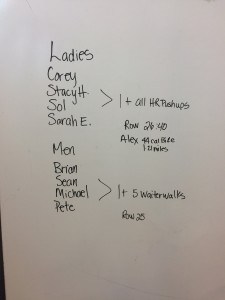 Ladies
Corey
Stacy H.
Sol
Sarah E.
1+ all HR Pushups
Row 26:40
Alex 44 cal Bike
Men
Brian
Sean
Michael
Pete
1+ 5 Waiter walks
Row 25